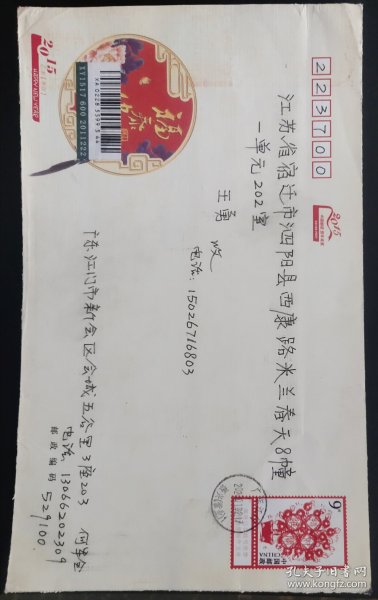 223700
江苏省宿迁市泗阳县西康路米兰春天8幢
一单元202室
王勇 收
电话:15026716803
广东江门市新会区会城五谷里3座203
电话:13066202309
邮政编码
529100
2015
HAPPY NEW YEAR
2015
福
XY1517 600 2011222
中国邮政
CHINA
9
孔夫子旧书网
kongfz.com